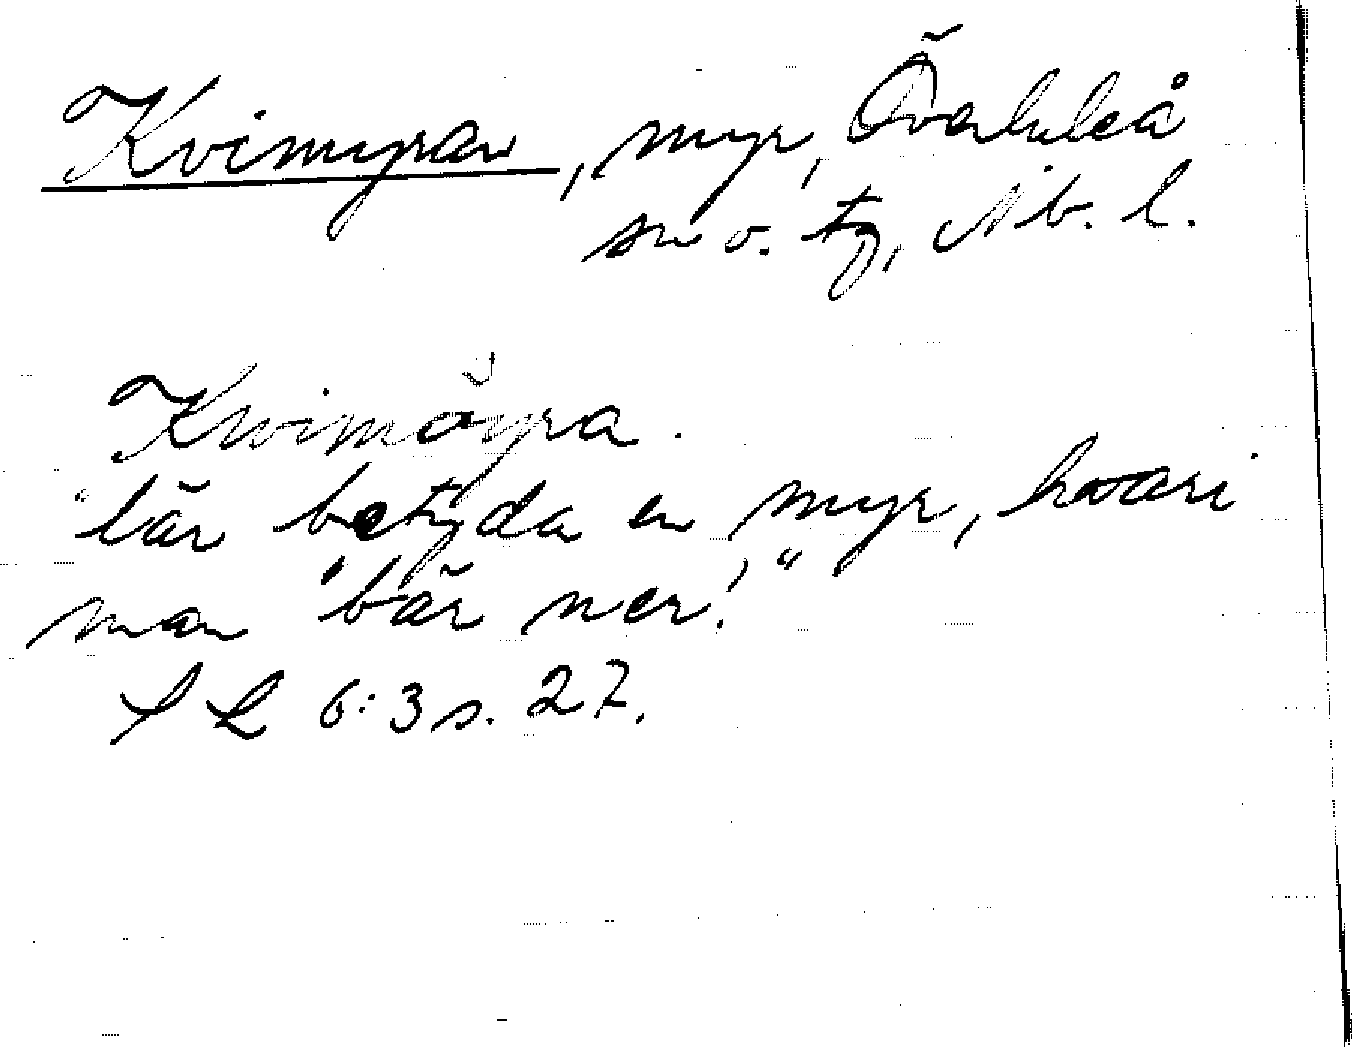 Kvimyran, myr, Överluleå
sn o. tg, Nb. l.
Kwimŏyra.
"lär betyda en myr, hvari
man 'bär ner'."
S L 6:3 s. 27.